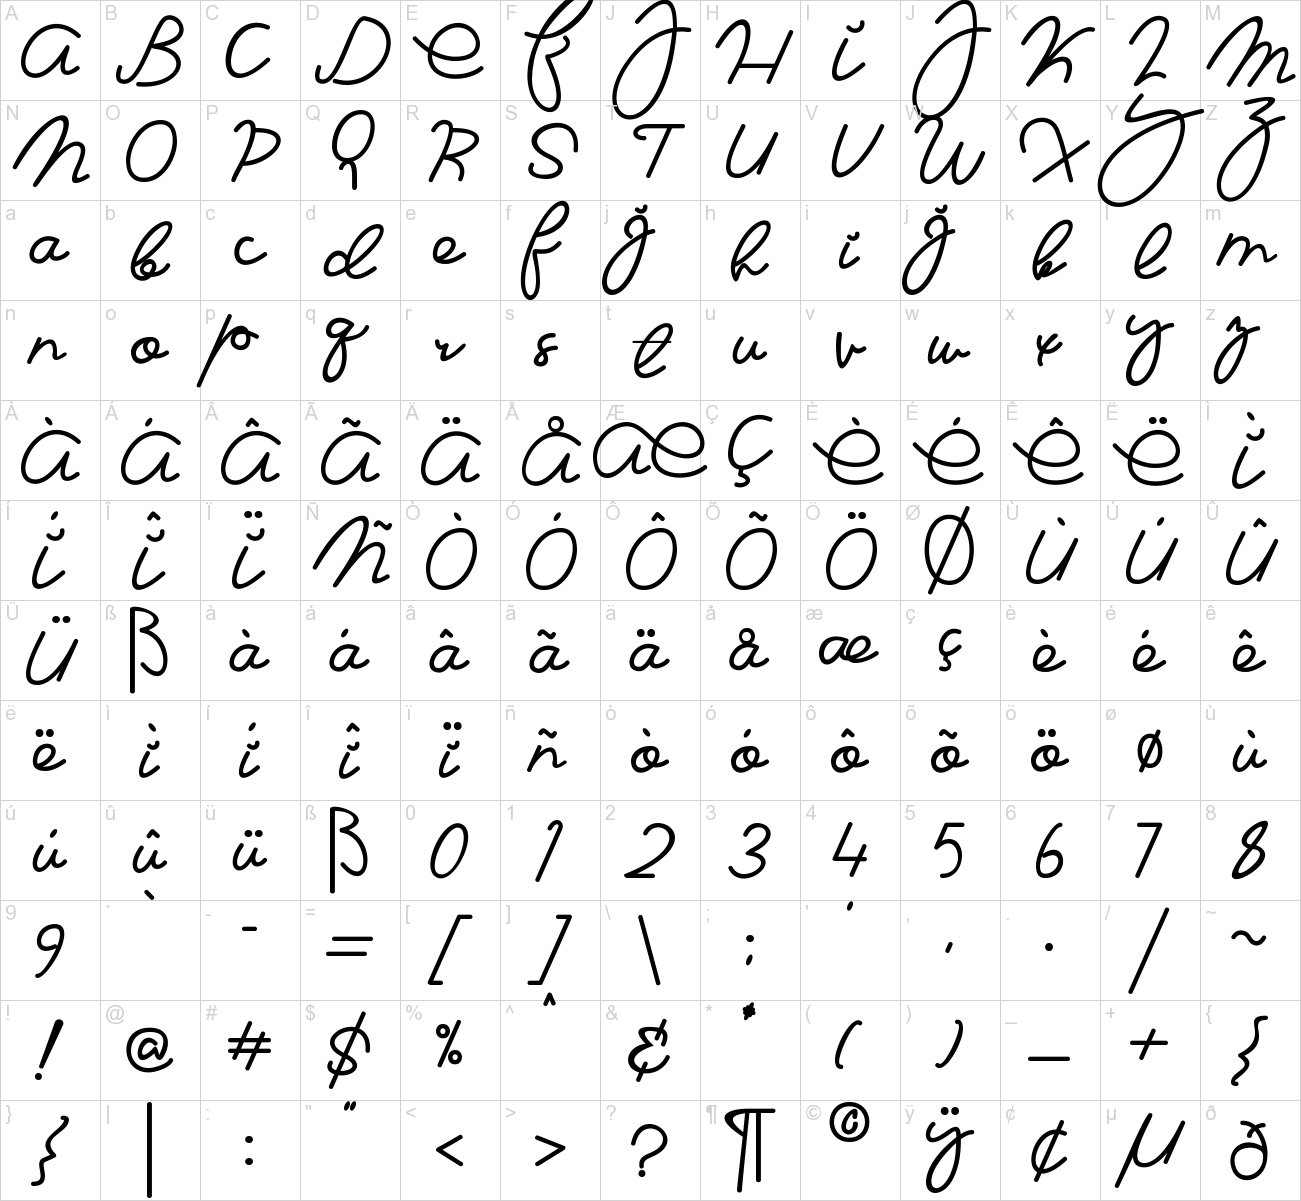 A B C D E F J H I J K L M
a B C D e f J H ĭ J K L m
N O P Q R S T U V W X Y Z
n O P Q R S T U V W X Y Z
a b c d e f j h i j k l m
a b c d e f ğ h ĭ ğ k l m
n o p q r s t u v w x y z
n o p q r s t u v w x y z
À Á Â Ã Ä Å Æ Ç È É Ê Ë Ì
À Á Â Ã Ä Å Æ Ç È É Ê Ë Ì
Í Î Ï Ñ Ò Ó Ô Õ Ö Ø Ù Ú Û
Í Î Ï Ñ Ò Ó Ô Õ Ö Ø Ù Ú Û
Ü ß à á â ã ä å æ ç è é ê
Ü ß à á â ã ä å æ ç è é ê
ë ì í î ï ñ ò ó ô õ ö ø ù
ë ì í î ï ñ ò ó ô õ ö ø ù
ú û ü ß 0 1 2 3 4 5 6 7 8
ú û ü ß 0 1 2 3 4 5 6 7 8
9 ` - = [ ] \ ; ' , . / ~
9 ` - = [ ] \ ; ' , . / ~
! @ # $ % ^ & * ( ) _ + {
! @ # $ % ^ & * ( ) _ + {
} | : " < > ? ¶ © ÿ ¢ µ ð
} | : " < > ? ¶ © ÿ ¢ µ ð